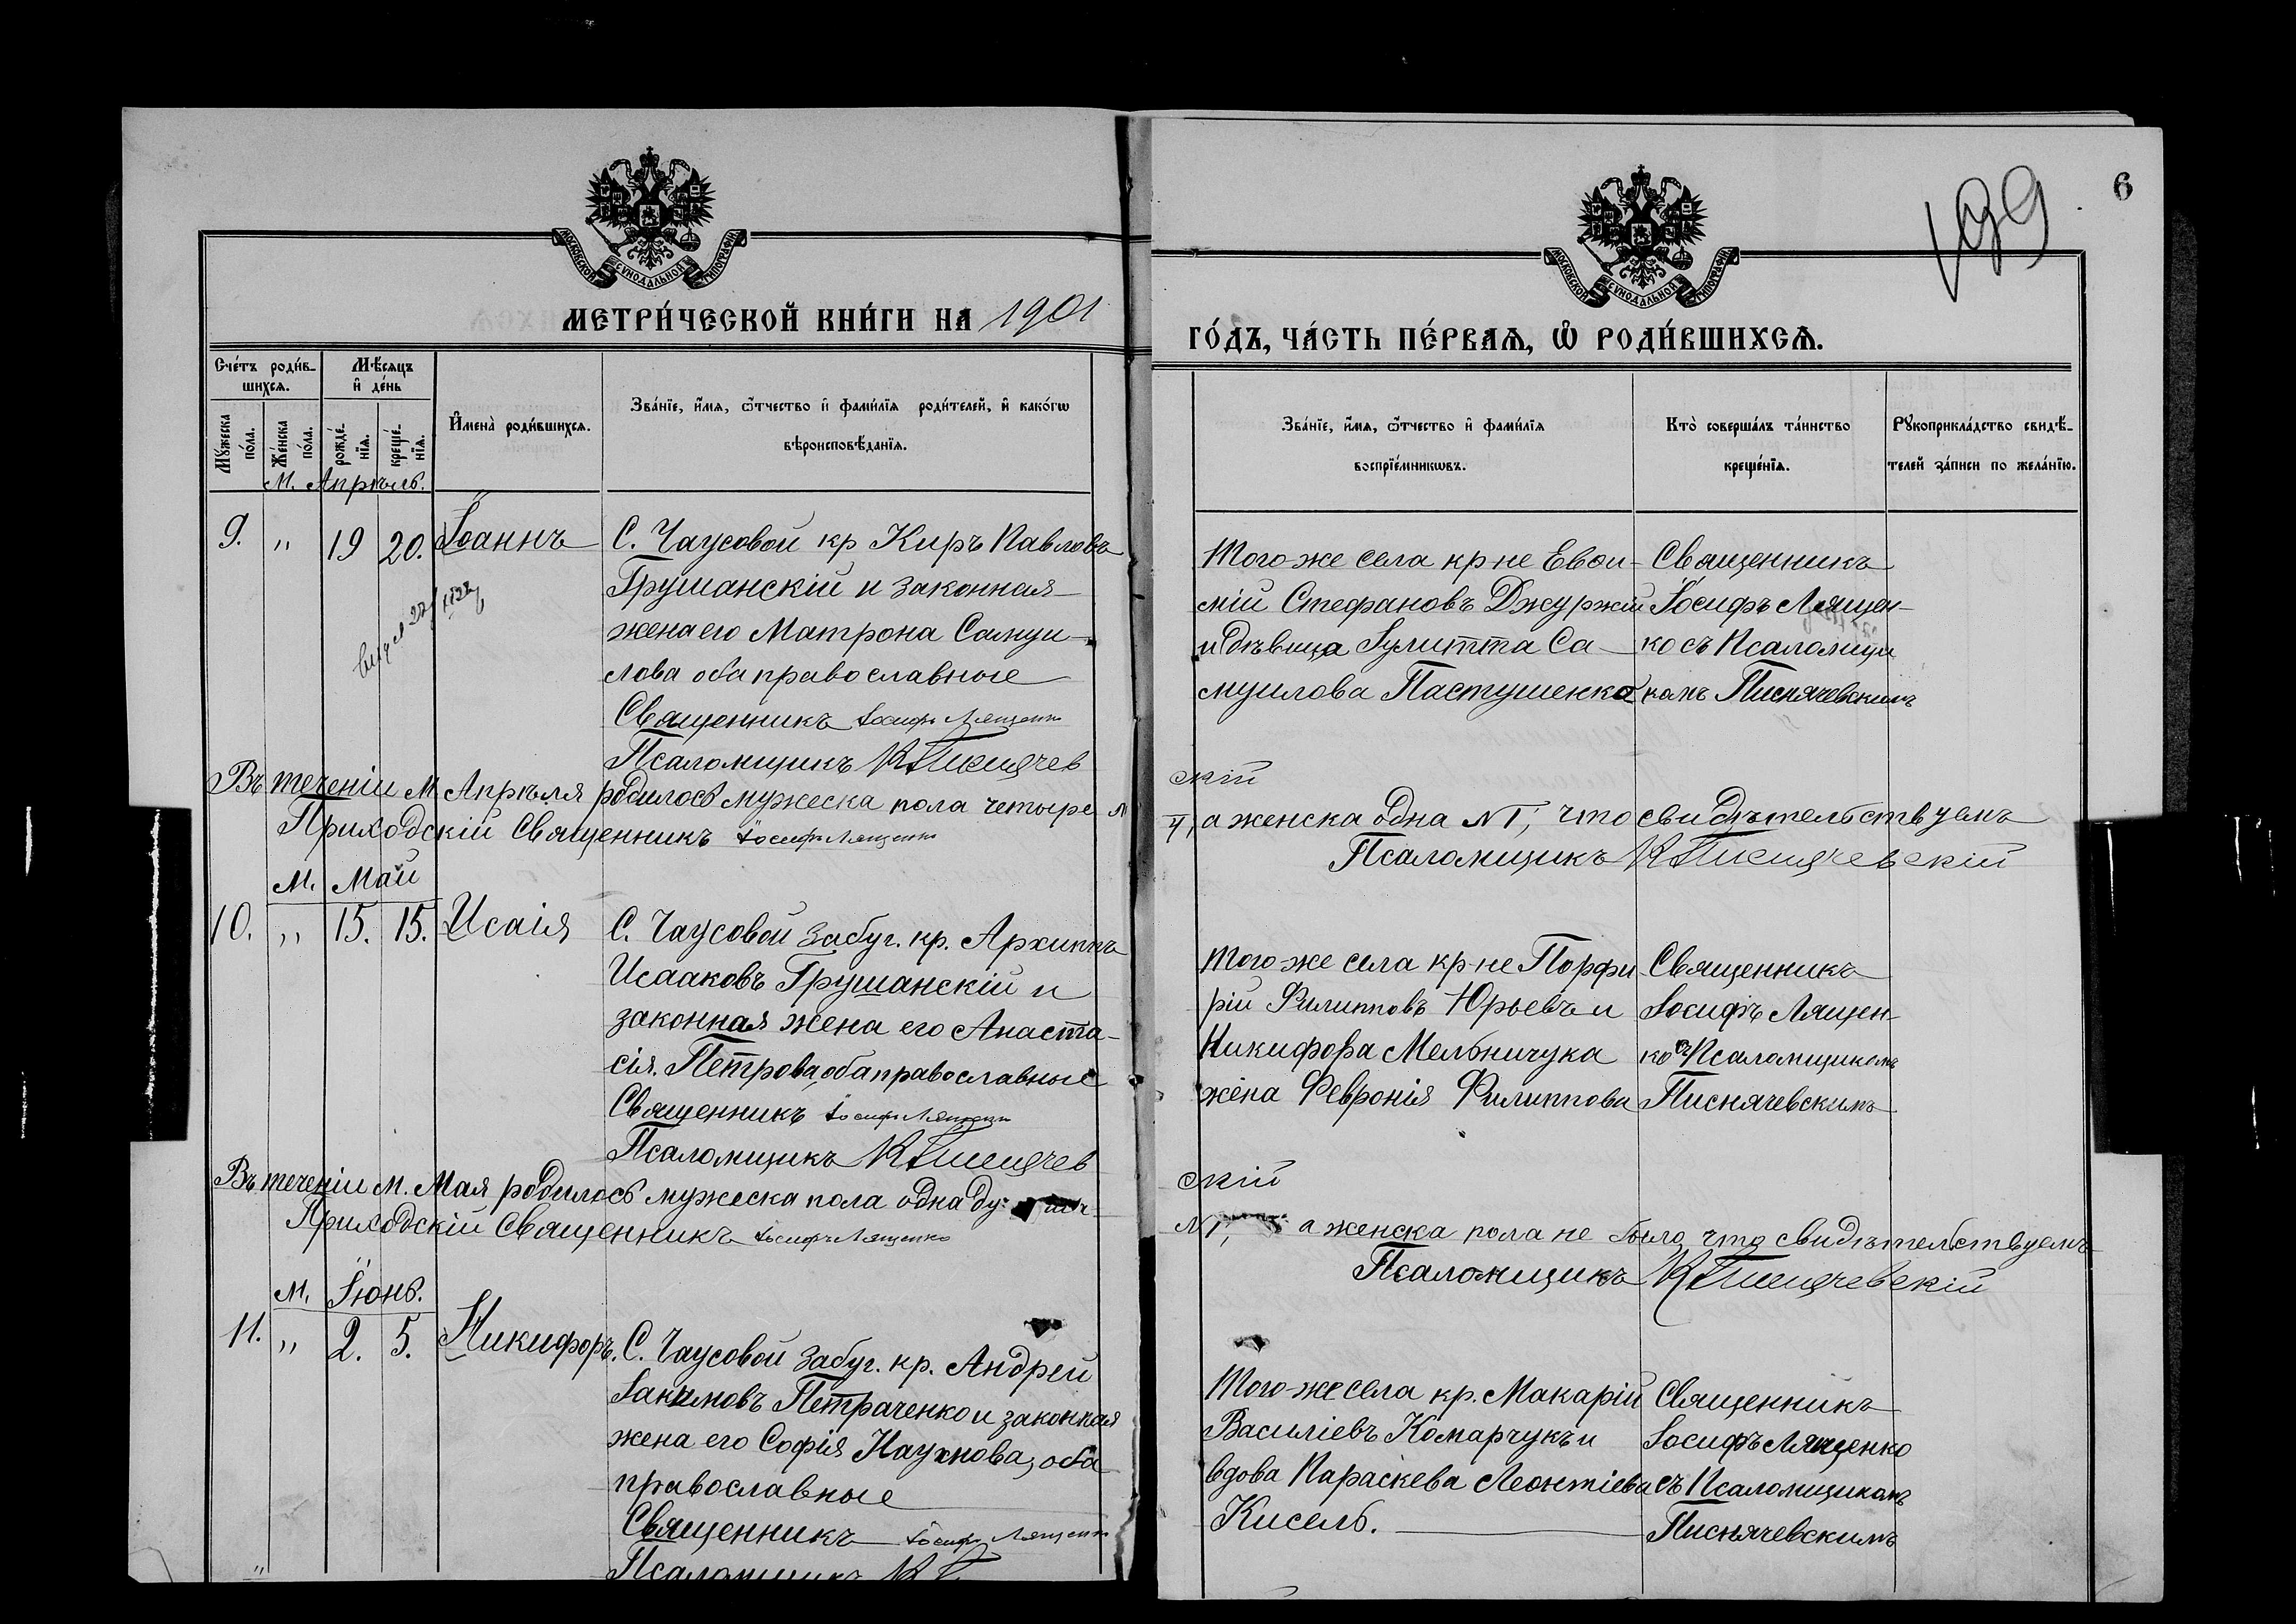 199
6
МОСКОВСКОЙ СѴНОДАЛЬНОЙ ТИПОГРАФІИ
МЕТРИ́ЧЕСКОЙ КНИ́ГИ НА 1901
Сче́тъ роди́в-
шихсѧ.
Мѣ́сяцъ
и҆ де́нь
И҆мена̀ роди́вшихсѧ.
Зва́нїе, и҆́мѧ, ѻ҆́тчество и҆ фами́лїѧ роди́телей, и҆ како́гѡ
вѣроисповѣ́данїѧ.
Мꙋ́жеска
по́ла.
Же́нска
по́ла.
рожде́-
нїѧ.
креще́-
нїѧ.
М. Апрѣль.
9. „ 19 20. Іоаннъ
С. Чаусовой кр Киръ Павловъ
Грушанскій и законная
жена его Матрона Самуи-
лова оба православные
Священникъ Іосифъ Лященко
Псаломщикъ К Писнячев
Въ теченіи М. Апрѣля родилось мужеска пола четыре N
Приходскій Священникъ Іосифъ Лященко
М. Май
10. „ 15. 15. Исаія
С. Чаусовой забуг. кр. Архиппъ
Исааковъ Грушанскій и
законная жена его Анаста-
сія Петрова, оба православные
Священникъ Іосифъ Лященко
Псаломщикъ К Писнячев
Въ теченіи М. Мая родилось мужеска пола одна ду-
Приходскій Священникъ Іосифъ Лященко
М. Іюнь.
11. „ 2. 5. Никифоръ.
С. Чаусовой забуг. кр. Андрей
Іакимовъ Петраченко и законная
жена его Софія Наумова, оба
православные
Священникъ Іосифъ Лященко
Псаломщикъ К
МОСКОВСКОЙ СѴНОДАЛЬНОЙ ТИПОГРАФІИ
ГО́ДЪ, ЧА́СТЬ ПЕ́РВАѦ, Ѡ҆ РОДИ́ВШИХСѦ.
Зва́нїе, и҆́мѧ, ѻ҆́тчество и҆ фами́лїѧ
воспрїе́мникѡвъ.
Кто̀ соверша́лъ та́инство
креще́нїѧ.
Рꙋкоприкла́дство свидѣ́-
телей за́писи по жела́нїю.
Того же села кр-не Евѳи-
мій Стефановъ Джуржій
и дѣвица Іулитта Са-
муилова Пастушенко
Священникъ
Іосифъ Лящен-
ко съ Псаломщи
комъ Писнячевскимъ
скій
4, а женска одна N 1, что свидѣтельствуемъ
Псаломщикъ К Писнячевскій
Того же села кр-не Порфи-
рій Филипповъ Юрьевъ и
Никифора Мельничука
жена Февронія Филиппова
Священникъ
Іосифъ Лящен-
ко съ Псаломщикомъ
Писнячевскимъ
скій
N 1, а женска пола не было, что свидѣтельствуемъ
Псаломщикъ К Писнячевскій
Того-же села кр. Макарій
Василіевъ Комарчукъ и
вдова Параскева Леонтіева
Кисель.
Священникъ
Іосифъ Лященко
съ Псаломщикомъ
Писнячевскимъ